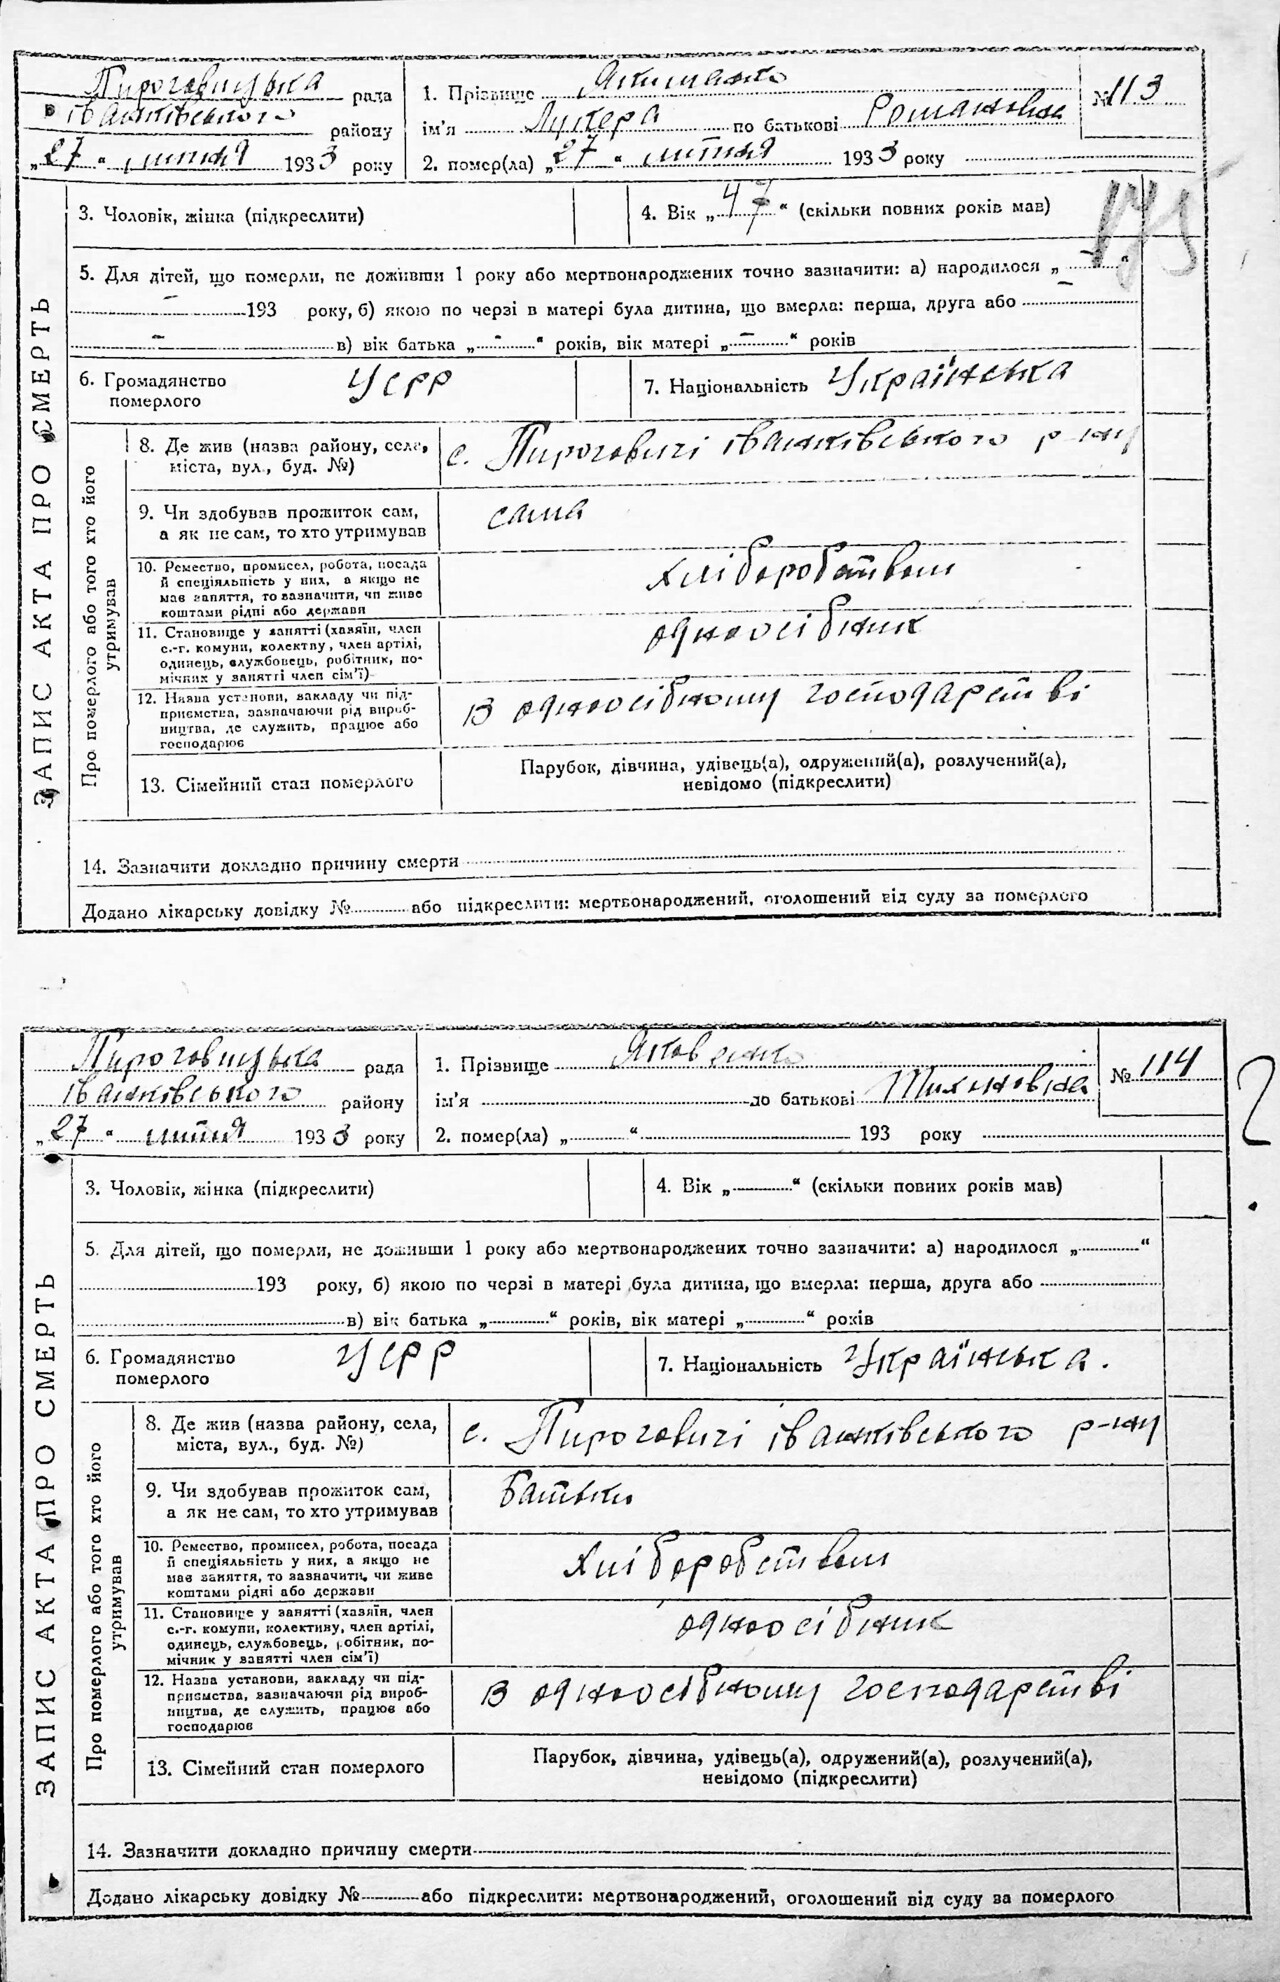 Пироговицька рада
в Іванківського району
„27“ липня 1933 року
1. Прізвище Якименко
ім'я Лукера по батькові Романовна
2. помер(ла) „27“ липня 1933 року
№ 113
175
ЗАПИС АКТА ПРО СМЕРТЬ
3. Чоловік, жінка (підкреслити)
4. Вік „47“ (скільки повних років мав)
5. Для дітей, що померли, не доживши 1 року або мертвонароджених точно зазначити: а) народилося „-“
- 193 року, б) якою по черзі в матері була дитина, що вмерла: перша, друга або -
- в) вік батька „-“ років, вік матері „-“ років
6. Громадянство померлого УСРР
7. Національність Українська
Про померлого або того хто його утримував
8. Де жив (назва району, села,
міста, вул., буд. №)
с. Пироговичі Іванківського р-ну
9. Чи здобував прожиток сам,
а як не сам, то хто утримував
сама
10. Ремество, промисел, робота, посада
й спеціяльність у них, а якщо не
має заняття, то зазначити, чи живе
коштами рідні або держави
хліборобством
11. Становище у занятті (хазяїн, член
с.-г. комуни, колективу, член артілі,
одинець, службовець, робітник, по-
мічник у занятті член сім'ї)
одноосібник
12. Назва установи, закладу чи під-
приємства, зазначаючи рід вироб-
ництва, де служить, працює або
господарює
В одноосібному господарстві
13. Сімейний стан померлого
Парубок, дівчина, удівець(а), одружений(а), розлучений(а),
невідомо (підкреслити)
14. Зазначити докладно причину смерти
Додано лікарську довідку № або підкреслити: мертвонароджений, оголошений від суду за померлого
Пироговицька рада
Іванківського району
„27“ липня 1933 року
1. Прізвище Яковенко
ім'я по батькові Тихоновна
2. помер(ла) „ “ 193 року
№ 114
?
ЗАПИС АКТА ПРО СМЕРТЬ
3. Чоловік, жінка (підкреслити)
4. Вік „ “ (скільки повних років мав)
5. Для дітей, що померли, не доживши 1 року або мертвонароджених точно зазначити: а) народилося „ “
193 року, б) якою по черзі в матері була дитина, що вмерла: перша, друга або
в) вік батька „ “ років, вік матері „ “ років
6. Громадянство померлого УСРР
7. Національність Українська.
Про померлого або того хто його утримував
8. Де жив (назва району, села,
міста, вул., буд. №)
с. Пироговичі Іванківського р-ну
9. Чи здобував прожиток сам,
а як не сам, то хто утримував
Батьки
10. Ремество, промисел, робота, посада
й спеціяльність у них, а якщо не
має заняття, то зазначити, чи живе
коштами рідні або держави
хліборобством
11. Становище у занятті (хазяїн, член
с.-г. комуни, колективу, член артілі,
одинець, службовець, робітник, по-
мічник у занятті член сім'ї)
одноосібник
12. Назва установи, закладу чи під-
приємства, зазначаючи рід вироб-
ництва, де служить, працює або
господарює
В одноосібному господарстві
13. Сімейний стан померлого
Парубок, дівчина, удівець(а), одружений(а), розлучений(а),
невідомо (підкреслити)
14. Зазначити докладно причину смерти
Додано лікарську довідку № або підкреслити: мертвонароджений, оголошений від суду за померлого